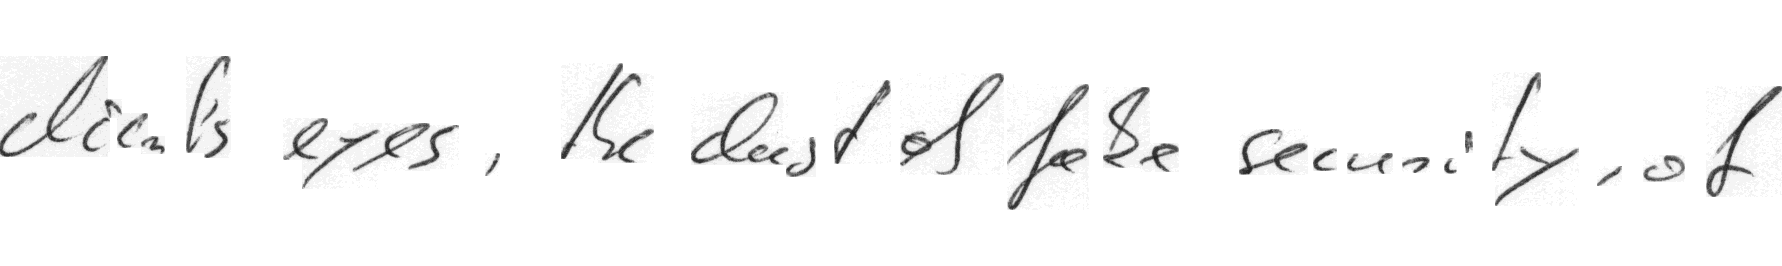 clients eyes, the dust of fake security, of